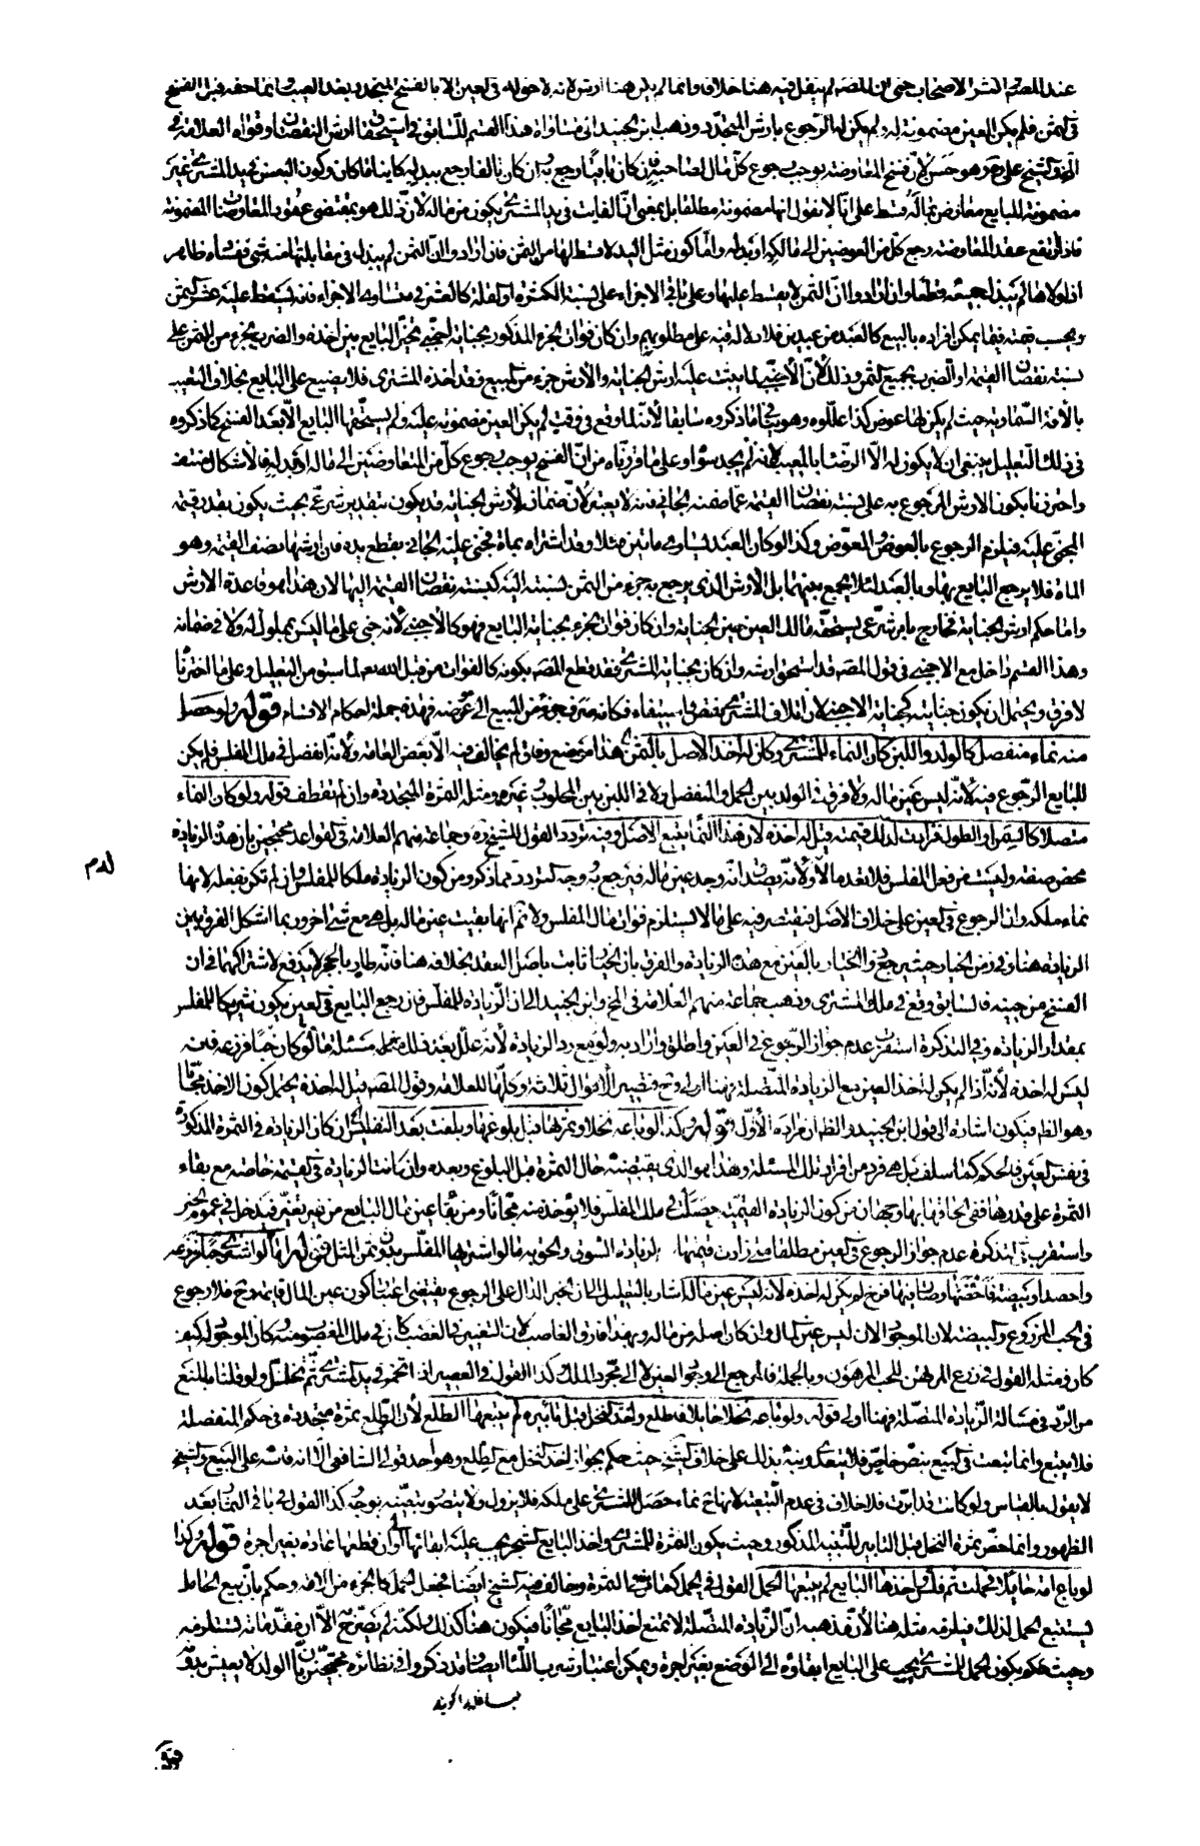 عند المصنف اكثر الاصحاب حتى ان المصنف لم ينقل فيه هنا خلافا وانما لم يكن هنا ارش لانه لا حق له في العين الا بالفسخ المتجدد بعد العيب وانما حقه قبل الفسخ
في الثمن فلم يكن العين مضمونة له ولم يكن له الرجوع بارش المتجدد وذهب ابن الجنيد الى مساواة هذا القسم للسابق في استحقاق ارش النقصان وقواه العلامة في
والشيخ علي وهو حسن لان فسخ المعاوضة يوجب رجوع كل مال لصاحبه فان كان باقيا رجع به وان كان تالفا رجع ببدله كاينا ما كان وكون البعض في يد المشتري غير
مضمونة للبايع معارض بماله قسط على انا لا نقول انها مضمونة مطلقا بل بمعنى ان الفايت في يد المشتري يكون من ماله لان ذلك هو مقتضى عقود المعاوضات المضمونة
فاذا ارتفع عقد المعاوضة رجع كل من العوضين الى مالكه او بدله واما كون مثل اليد لا قسط لها من الثمن فان ارادوا ان الثمن لم يبذل في مقابلتها منه شئ ففساده ظاهر
اذ لولاها لم يبذل جميعه قطعا وان ارادوا ان الثمن لا يقسط عليها وعلى باقي الاجزاء على نسبة الكثرة او القلة كالعشر في متساوي الاجزاء فانه يسقط عليه عشر الثمن
وبحسب قيمته فيما يمكن افراده بالبيع كالعبد من عبدين فلا دلالة فيه على مطلوبهم وان كان فوات الجزء المذكور بجناية اجنبي تخير البايع بين اخذه والضرب بجزء من الثمن على
نسبة نقصان القيمة او الضرب بجميع الثمن وذلك لان الاجنبي لما يثبت عليه ارش الجناية والارش جزء من المبيع وقد اخذه المشتري فلا يضيع على البايع بخلاف التعيب
بالآفة السماوية حيث لم يكن لها عوض كذا عللوه وهو ينافي ما ذكروه سابقا لانه لما وقع في وقت لم يكن العين مضمونة عليه ولم يستحقها البايع الا بعد الفسخ كما ذكروه
في ذلك التعليل ينبغي ان لا يكون له الا الرضا بالمعيب لانه لم يجد سواه وعلى ما قررناه من ان الفسخ يوجب رجوع كل من المتعاوضين الى ماله او بدله فالاشكال منتف
واحترزنا بكون الارش المرجوع به على نسبة نقصان القيمة عما ضمنه الجاني فانه لا يعتبر لان ضمانه لارش الجناية قد يكون بتقدير شرعي بحيث يكون بقدر قيمة
المجني عليه فيلزم الرجوع بالعوض والمعوض وكذا لو كان العبد يساوي مائتين مثلا وقد اشتراه بماة فجنى عليه الجاني بقطع يده فان ارشها نصف القيمة وهو
الماة فلا يرجع البايع بها وبالعبد لئلا يجمع بينهما بل الارش الذي يرجع به جزء من الثمن نسبته اليه كنسبة نقصان القيمة اليها لان هذا هو قاعدة الارش
واما حكم ارش الجناية فخارج بامر شرعي يستحقه مالك العين حين الجناية وان كان فوات الجزء بجناية البايع فهو كالاجنبي لانه جنى على ما ليس بمملوك له ولا في ضمانه
وهذا القسم داخل مع الاجنبي في قول المصنف قد استحق ارشه وان كان بجناية المشتري فقد قطع المصنف بكونه كالفوات من قبل الله تعالى لما سبق من التعليل وعلى ما اخترناه
لا فرق ويحتمل ان يكون جنايته كجناية الاجنبي لان اتلاف المشتري قبض واستيفاء فكانه صرف جزء من المبيع الى غرضه فهذه جملة احكام الاقسام قوله ولو حصل
منه نماء منفصل كالولد واللبن كان النماء للمشتري وكان له اخذ الاصل بالثمن هذا موضع وفاق لم يخالف فيه الا بعض العامة ولانه انفصل في ملك المفلس فلم يكن
للبايع الرجوع فيه لانه ليس عين ماله ولا فرق في الولد بين الحمل والمنفصل ولا في اللبن بين المحلوب وغيره ومثله الثمرة المتجددة وان لم تقطف قوله ولو كان النماء
متصلا كالسمن او الطول فزادت لذلك قيمته قيل له اخذه لان هذا النماء يتبع الاصل وفيه تردد القول للشيخ ره وجماعة منهم العلامة في القواعد محتجين بان هذه الزيادة
محض صفة وليست من فعل المفلس فلا تعد مالا ولانه يصدق انه وجد عين ماله فيرجع به وجه التردد مما ذكر ومن كون الزيادة ملكا للمفلس وان لم تكن بفعله لانها
نماء ملكه وان الرجوع في العين على خلاف الاصل فيقتصر فيه على ما لا يستلزم فوات مال المفلس ولا نم انها بقيت عين ماله بل هي مع شئ اخر وربما اشكل الفرق بين
الزيادة هنا وفي زمن الخيار حيث يرجع ذو الخيار بالعين مع هذه الزيادة والفرق بان الخيار ثابت باصل العقد بخلافه هنا فانه طار بالحجر لا يدفع لاشتراكهما في ان
الفسخ من حينه فالسابق وقع في ملك المشتري وذهب جماعة منهم العلامة في المخ وابن الجنيد الى ان الزيادة للمفلس فان رجع البايع في العين يكون شريكا للمفلس
بمقدار الزيادة وفي التذكرة استقرب عدم جواز الرجوع في العين واطلق واراد به ولو مع رد الزيادة لانه علل بعد ذلك بمثله مسئلة ما لو كان حبا فزرعه فانه
ليس له اخذه لانه اذا لم يكن له اخذ العين مع الزيادة المتصلة فهنا اولى وح فتصير الاقوال ثلاثة وكلها للعلامة وقول المصنف قبل له اخذه يحتمل كون الاخذ مجانا
وهو الظ فيكون اشارة الى قول ابن الجنيد والظ ان مراده الاول قوله وكذا لو باعه نخلا وثمرها قبل بلوغها وبلغت بعد التفليس ان كان الزيادة في الثمرة المذكورة
في نفس العين فالحكم كما سلف بل هي فرد من افراد تلك المسئلة وهذا هو الذي يقتضيه حال الثمرة قبل البلوغ وبعده وان كانت الزيادة في القيمة خاصة مع بقاء
الثمرة على قدرها ففي الحاقها بها وجهان من كون الزيادة القيمية حصلت في ملك المفلس فلا يؤخذ منه مجانا ومن بقاء عين مال البايع من غير تغير فيدخل في عموم الخبر
واستقرب في التذكرة عدم جواز الرجوع في العين مطلقا متى زادت قيمتها لزيادة السوق والحق به ما لو اشتراها المفلس بدون ثمن المثل قوله اما لو اشترى حبا فزرعه
واحصد او بيضة فاحضنها وصار منها فرخ لم يكن له اخذه لانه ليس عين ماله اشار بالتعليل الى ان الخبر الدال على الرجوع يقتضي اعتبار كون عين المال قائمة وح فلا رجوع
في الحب المزروع والبيضة لان الموجود الان ليس عين المال وان كان اصله من ماله وبهذا فارق الغاصب لان التغيير في الغصب كان في ملك المغصوب منه
كان في مثله القول في زرع المرتهن للحب المرهون وبالجملة فالمرجع الى وجود العين لا الى مجرد الملك كذا القول في العصير اذا تخمر في يد المشتري ثم تخلل ولو قلنا بالمنع
من الرد في مسالة الزيادة المتصلة فهنا اولى قوله ولو باعه نخلا حايلا فاطلع واخذ النخل قبل تابيره لم يتبعها الطلع لان الطلع ثمرة متجددة في حكم المنفصلة
فلا يتبع وانما تبعت في البيع بنص خاص فلا يتعدى ونبه بذلك على خلاف الشيخ حيث حكم بجواز اخذ النخل مع الطلع وهو احد قولي الشافعي الا انه قاسه على البيع والشيخ
لا يقول بالقياس ولو كانت قد ابرت فلا خلاف في عدم التبعية لانها ح نماء حصل للمشتري على ملكه فلا يزول ولا يتصور تبعيته بوجه كذا القول في باقي الثمار بعد
الظهور وانما خص ثمرة النخل قبل التابير للتنبيه المذكور وحيث يكون الثمرة للمشتري واخذ البايع الشجر يجب عليه ابقائها الى اوان قطعها عادة بغير اجرة قوله وكذا
لو باع امة حايلا فحملت ثم فلس واخذها البايع لم يتبعها الحمل القول في الحمل كما في الثمرة وخالف فيه الشيخ ايضا فجعل الحمل كالجزء من الامة وحكم بان بيع الحامل
يستتبع الحمل لذلك فيلزمه مثله هنا لان مذهبه ان الزيادة المتصلة لا تمنع اخذ البايع مجانا فيكون هنا كذلك ولكنه لم يصرح الا ان مقدماته تستلزمه
وحيث حكم بكون الحمل للمشتري يجب على البايع ابقاؤه الى الوضع بغير اجرة ويمكن اعتبار شرب اللبا ايضا وقد ذكروا في نظائره محتجين بان الولد لا يعيش بدونه